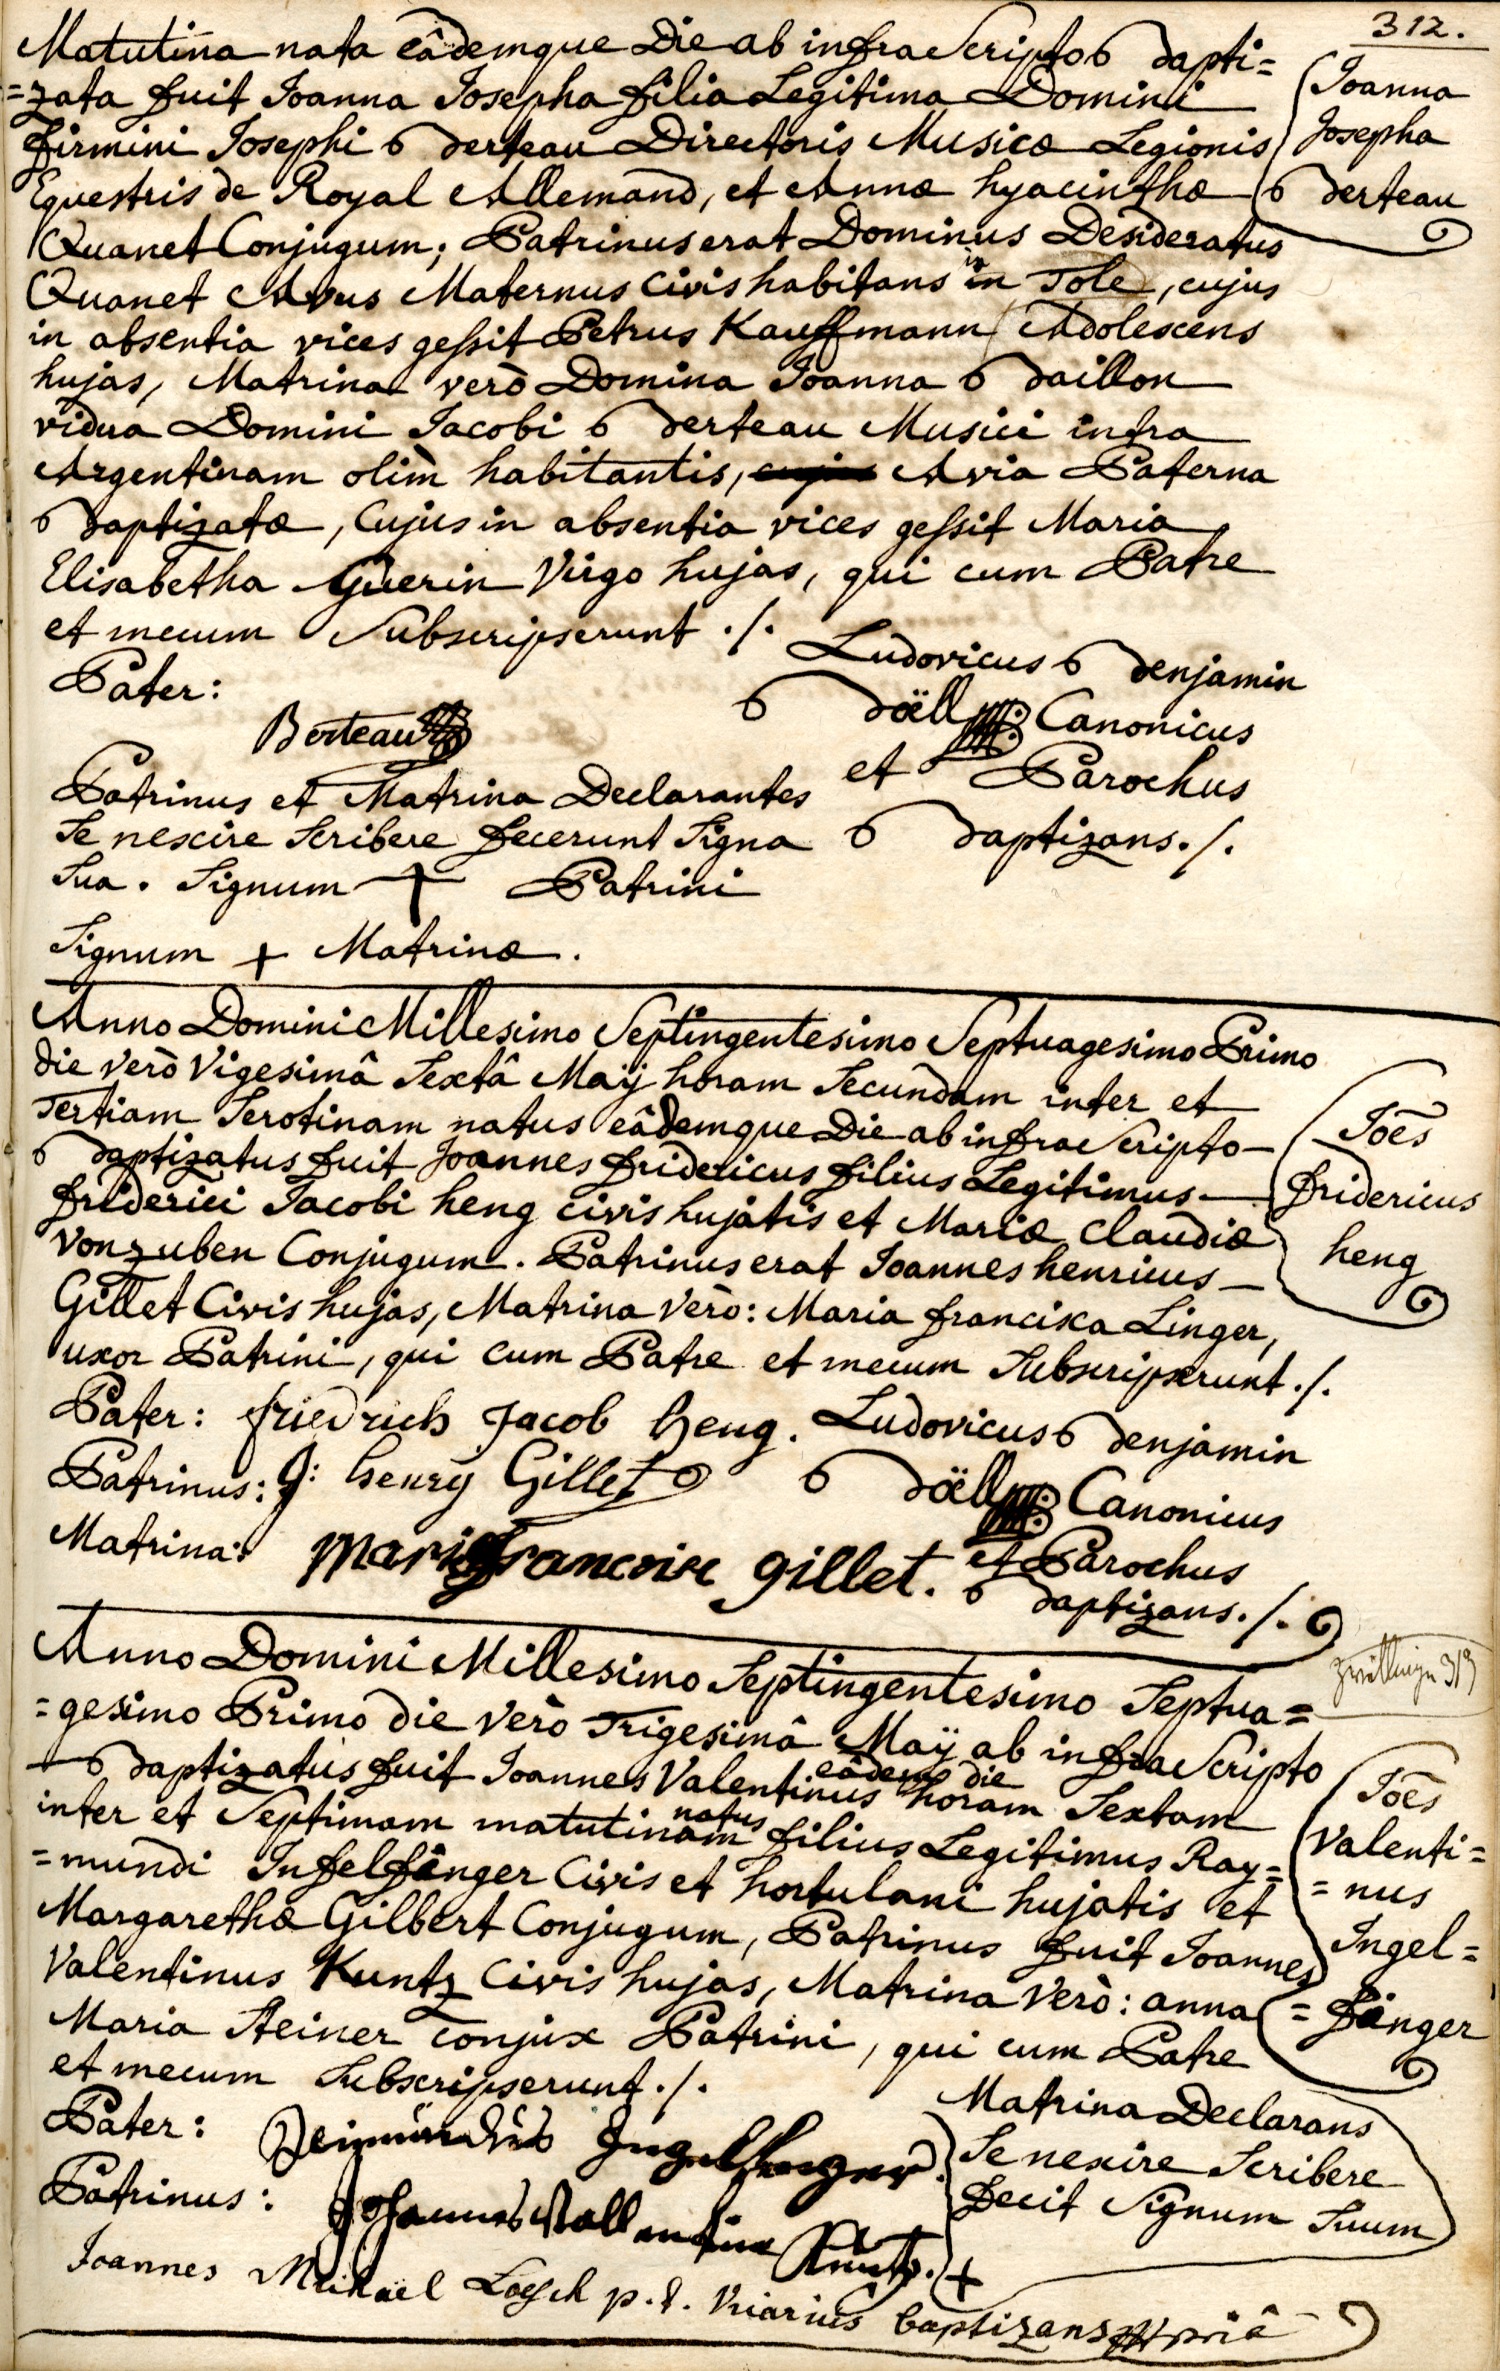 312.
Matutina nata eâdemque Die ab infra Scripto Bapti=
=zata fuit Joanna Josepha filia Legitima Domini
firmini Josephi Berteau Directoris Musicæ Legionis
Equestris de Royal Allemand, et Annæ hyacinthæ
Quanet Conjugum; Patrinus erat Dominus Desideratus
Quanet Avus Maternus Civis habitans in Tole, cujus
in absentia vices gessit Petrus Kauffmann Adolescens
hujas, Matrina verò Domina Joanna Baillon
vidua Domini Jacobi Berteau Musici infra
Argentinam olim habitantis, cujus Avia Paterna
Baptizatæ, Cujus in absentia vices gessit Maria
Elisabetha Guerin Virgo hujas, qui cum Patre
et mecum Subscripserunt ./.
Joanna
Josepha
Berteau
Pater:
Berteau
Patrinus et Matrina Declarantes
Se nescire Scribere fecerunt Signa
Sua. Signum + Patrini
Signum + Matrinæ.
Ludovicus Benjamin
Böll Canonicus
et Parochus
Baptizans ./.
Anno Domini Millesimo Septingentesimo Septuagesimo Primo
die verò Vigesimâ Sextâ Maÿ horam Secundam inter et
Tertiam Serotinam natus eâdemque Die ab infra Scripto
Baptizatus fuit Joannes fridericus filius Legitimus
friderici Jacobi heng civis hujatis et Mariæ Claudiæ
Vonzuben Conjugum. Patrinus erat Joannes henricus
Gillet Civis hujas, Matrina Verò: Maria francisca Linger,
uxor Patrini, qui cum Patre et mecum Subscripserunt ./.
Joēs
fridericus
heng
Pater: friedrich Jacob heng.
Patrinus: J: henry Gillet
Matrina: Marie francoise gillet.
Ludovicus Benjamin
Böll Canonicus
et Parochus
Baptizans ./.
Zwillinge 313
Anno Domini Millesimo Septingentesimo Septua=
=gesimo Primo die Verò Trigesimâ Maÿ ab infra Scripto
Baptizatus fuit Joannes Valentinus eâdem die horam Sextam
inter et Septimam matutinam natus filius Legitimus Ray=
=mundi Infelfänger Civis et hortulani hujatis et
Margarethæ Gilbert Conjugum, Patrinus fuit Joannes
Valentinus Kuntz Civis hujas, Matrina Verò: anna
Maria Steiner conjux Patrini, qui cum Patre
et mecum Subscripserunt ./.
Joēs
Valenti=
=nus
Ingel=
=fänger
Pater: Reimundus Ingelfenger.
Patrinus: Johannes Vallentine Kuntz.
Matrina Declarans
Se nescire Scribere
fecit Signum Suum
+
Joannes Michaël Loesch p.t. Vicarius baptizans mpriâ